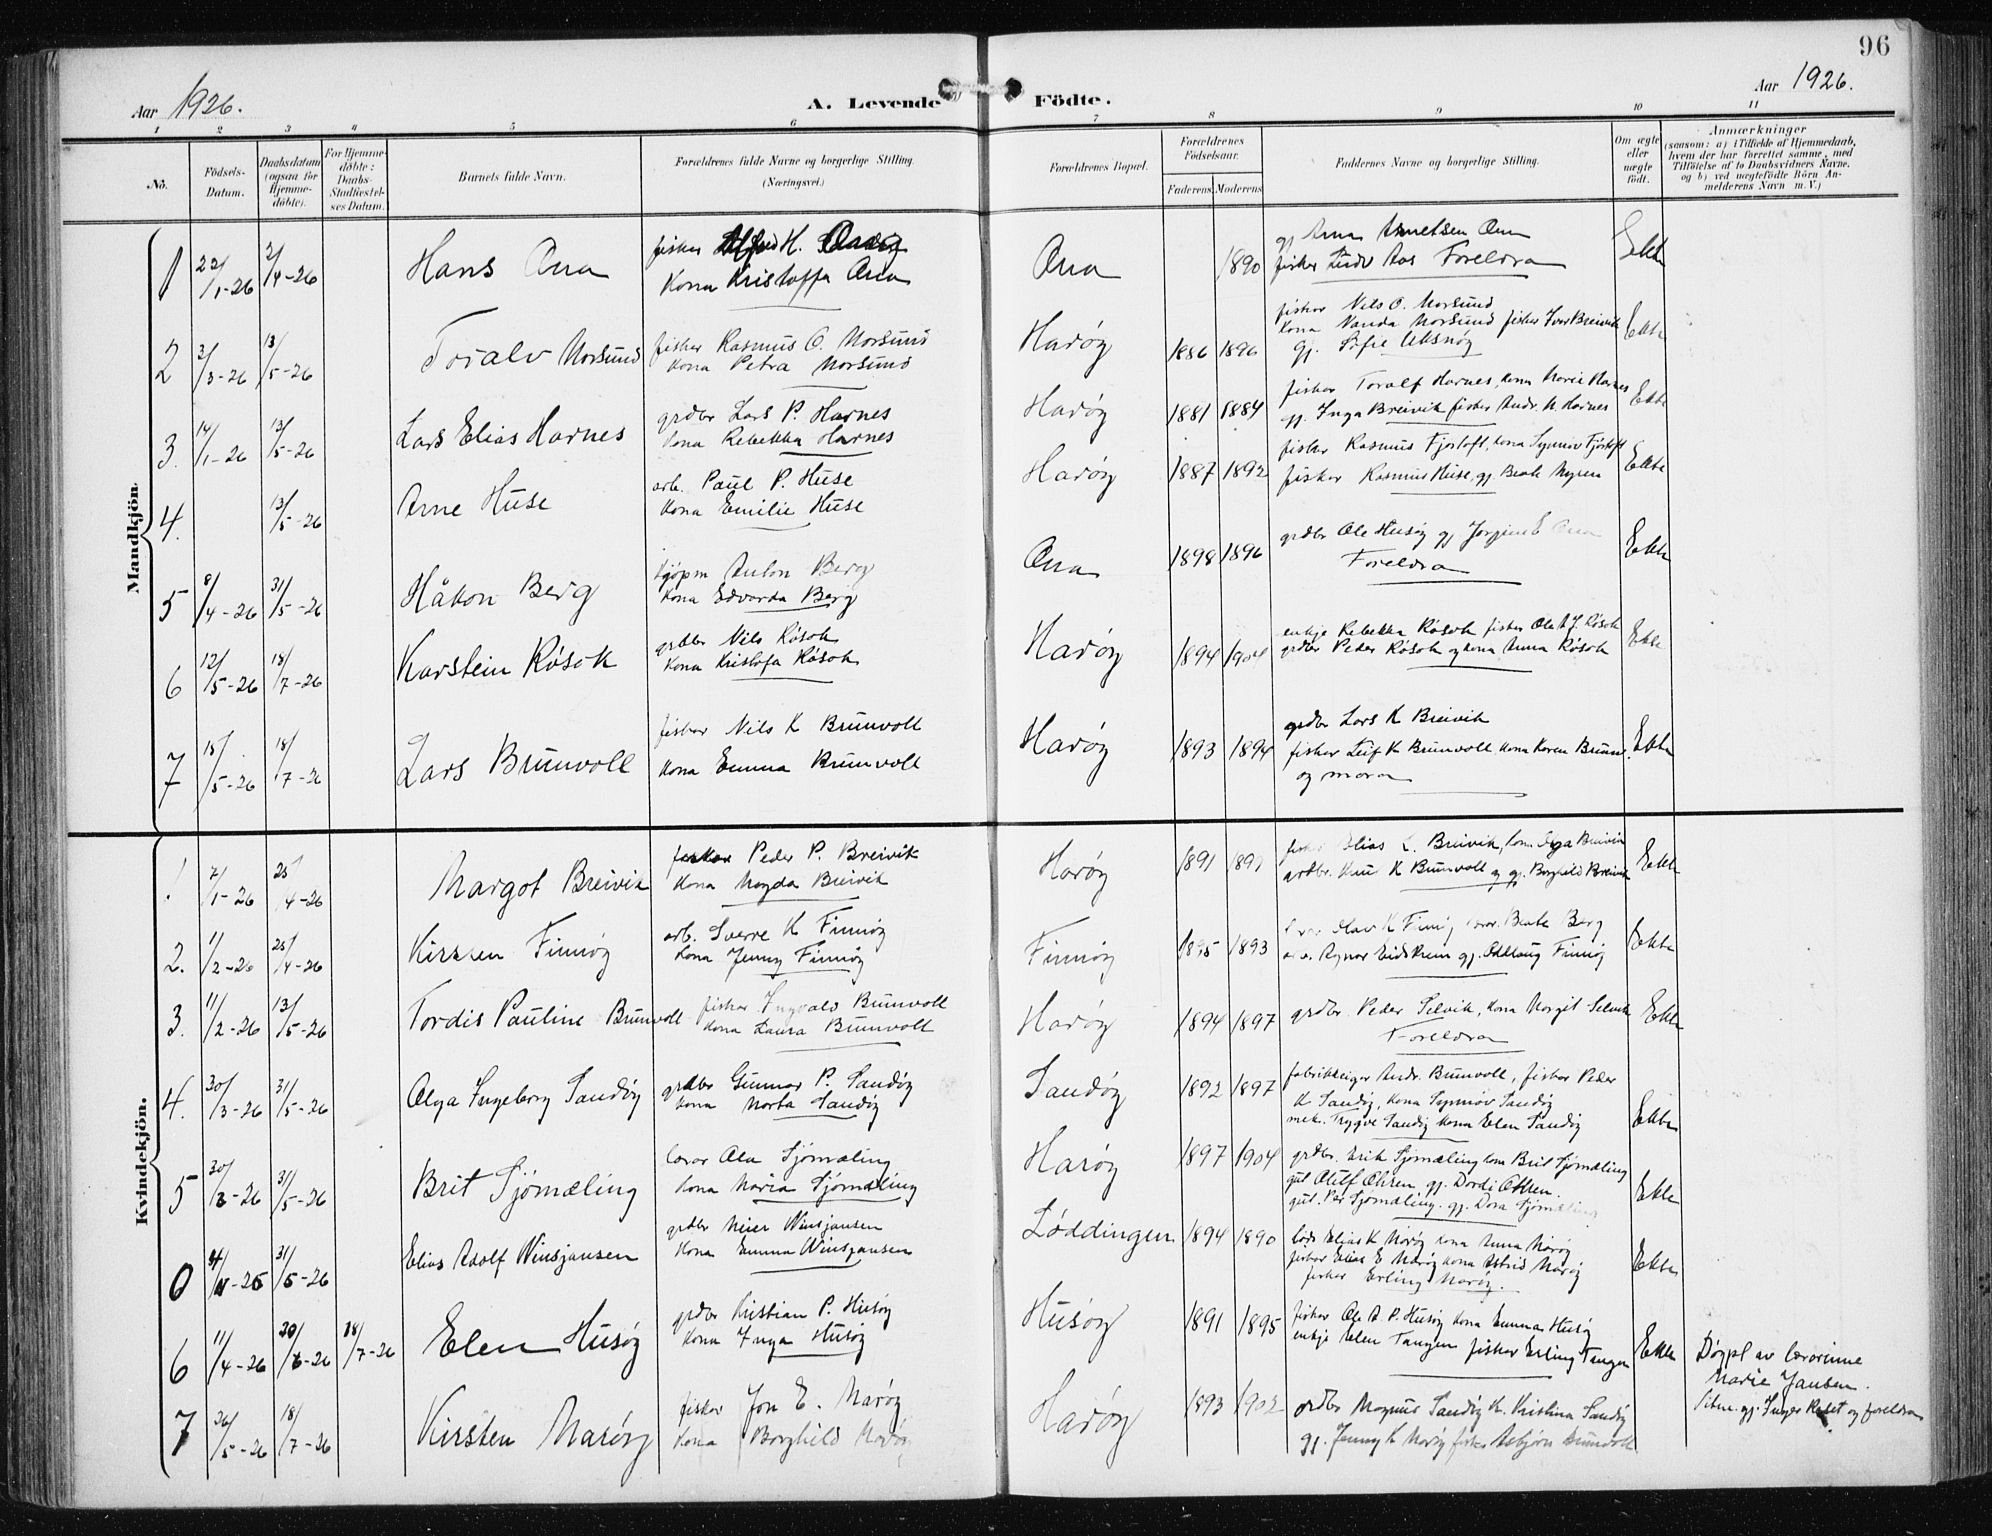 96
Aar 1926.
A. Levende Födte.
Aar 1926.
1 2 3 4 5 6 7 8 9 10 11
No.
Födsels-Datum.
Daabsdatum (ogsaa for Hjemme-döbte).
For Hjemme-döbte: Daabs-Stadfæstel-ses Datum.
Barnets fulde Navn.
Forældrenes fulde Navne og borgerlige Stilling. (Næringsvei.)
Forældrenes Bopæl.
Forældrenes Födselsaar.
Faderens Moderens
Faddernes Navne og borgerlige Stilling.
Om ægte eller uægte födt.
Anmærkninger
(saasom: a) i Tilfælde af Hjemmedaab, hvem der har forrettet samme, med Tilföielse af to Daabsvidners Navne, og b) ved uægtefödte Börn An-melderens Navn m. V.)
Mandkjön.
1 22/1-26 2/4-26 Hans Ona
fisker Alfred H.
Kona Kristoffa Ona
Ona 1890
fisker Foreldra
Ekte
2 2/3-26 13/5-26 Toralv Morsund
fisker Rasmus O. Morsund
Kona Petra Morsund
Haröy 1886 1896
fisker Nils O. Morsund
Kona Vanda Morsund fisker Ivar Breivik
gj. Sofie Uksnöy
Ekte
3. 14/1-26 13/5-26 Lars Elias Harnes
grdbr Lars P. Harnes
Kona Rebekka Harnes
Haröy 1881 1884
fisker Toralf Harnes, Kona Marie Harnes
gj. Inga Breivik fisker Andr. K. Harnes
Ekte
4. 13/5-26 Arne Huse
arb. Paul P. Huse
Kona Emilie Huse
Haröy 1887 1892
fisker Rasmus Fjortoft, Kona Synnöv Fjortoft
fisker Rasmus Huse, gj. Beate Myren
Ekte
5 8/4-26 31/5-26 Håkon Berg
kjöpm Anton Berg
Kona Edvarda Berg
Ona 1898 1896
grdbr Ole Husöy gj Ona
Foreldra
Ekte
6 12/5-26 18/7-26 Karstein Rösok
grdbr Nils Rösok
Kona Kristofa Rösok
Haröy 1894 1904
enkje Rebekka Rösok fisker Ole Rösok
grdbr Peder Rösok og kona Anna Rösok
Ekte
7 18/5-26 18/7-26 Lars Brunvoll
fisker Nils K Brunvoll
Kona Emma Brunvoll
Haröy 1893 1894
grdbr Lars K Breivik
fisker Leif K Brunvoll Kona Karen Brunv.
og mora
Ekte
Kvindekjön.
1 7/1-26 25/4-26 Margot Breivik
fisker Peder P. Breivik
Kona Magda Breivik
Haröy 1891
Elias L. Breivik, Olga Breivik
grdbr. K Brunvoll og gj. Borghild Breivik
Ekte
2. 11/2-26 25/4-26 Kirsten Finnöy
arb. Sverre K Finnöy
Kona Jenny Finnöy
Finnöy 1895 1893
Olav K Finnöy Beate Berg
Ragnar Eidskrem gj. Oddlaug Finnöy
Ekte
3. 11/2-26 13/5-26 Tordis Pauline Brunvoll
fisker Ingvald Brunvoll
Kona Laura Brunvoll
Haröy 1894 1897
grdbr. Peder Selvik, Kona Margit Selvik
Foreldra
Ekte
4. 30/3-26 31/5-26 Olga Ingeborg Sandöy
grdbr Gunnar P. Sandöy
Kona Marta Sandöy
Sandöy 1892 1897
fabrikkeigar Andr. Brunvoll, fisker Peder
K Sandöy, Kona Synnöv Sandöy
mek. Trygve Sandöy Kona Elen Sandöy
Ekte
5 30/3-26 31/5-26 Brit Sjömæling
lærar Ola Sjömæling
Kona Maria Sjömæling
Haröy 1897 1904
grdbr. Erik Sjömæling kona Brit Sjömæling
gut Olulf Ohren gj. Dordi Ohren.
gut. Per Sjömæling. gj. Dora Sjömæling
Ekte
0 31/5-26 Elias Adolf Winsjansen
grdbr Meier Winsjansen
Kona Emma Winsjansen
Löddingen 1894 1890
Elias K Maröy Kona Anna Maröy
fisker Elias E Maröy kona Astrid Maröy
fisker Erling Maröy.
Ekte
6 11/4-26 18/7-26 Elen Husöy
grdbr Kristian P. Husöy
Kona Inga Husöy
Husöy 1891 1895
fisker Ole A. P. Husöy Kona Emma Husöy
enkje Elen Tangen fisker Erling Tangen
Ekte
Döypt av lærarinne
Marie Jansen.
gj. Inger og foreldra
7 26/5-26 18/7-26 Kirsten Maröy
fisker Jon E. Maröy
Kona Borghild Maröy
Haröy 1893 1902
grdbr Magnus Sandöy K. Kristina Sandöy
gj. Jenny K Maröy fisker Asbjörn Brunvoll